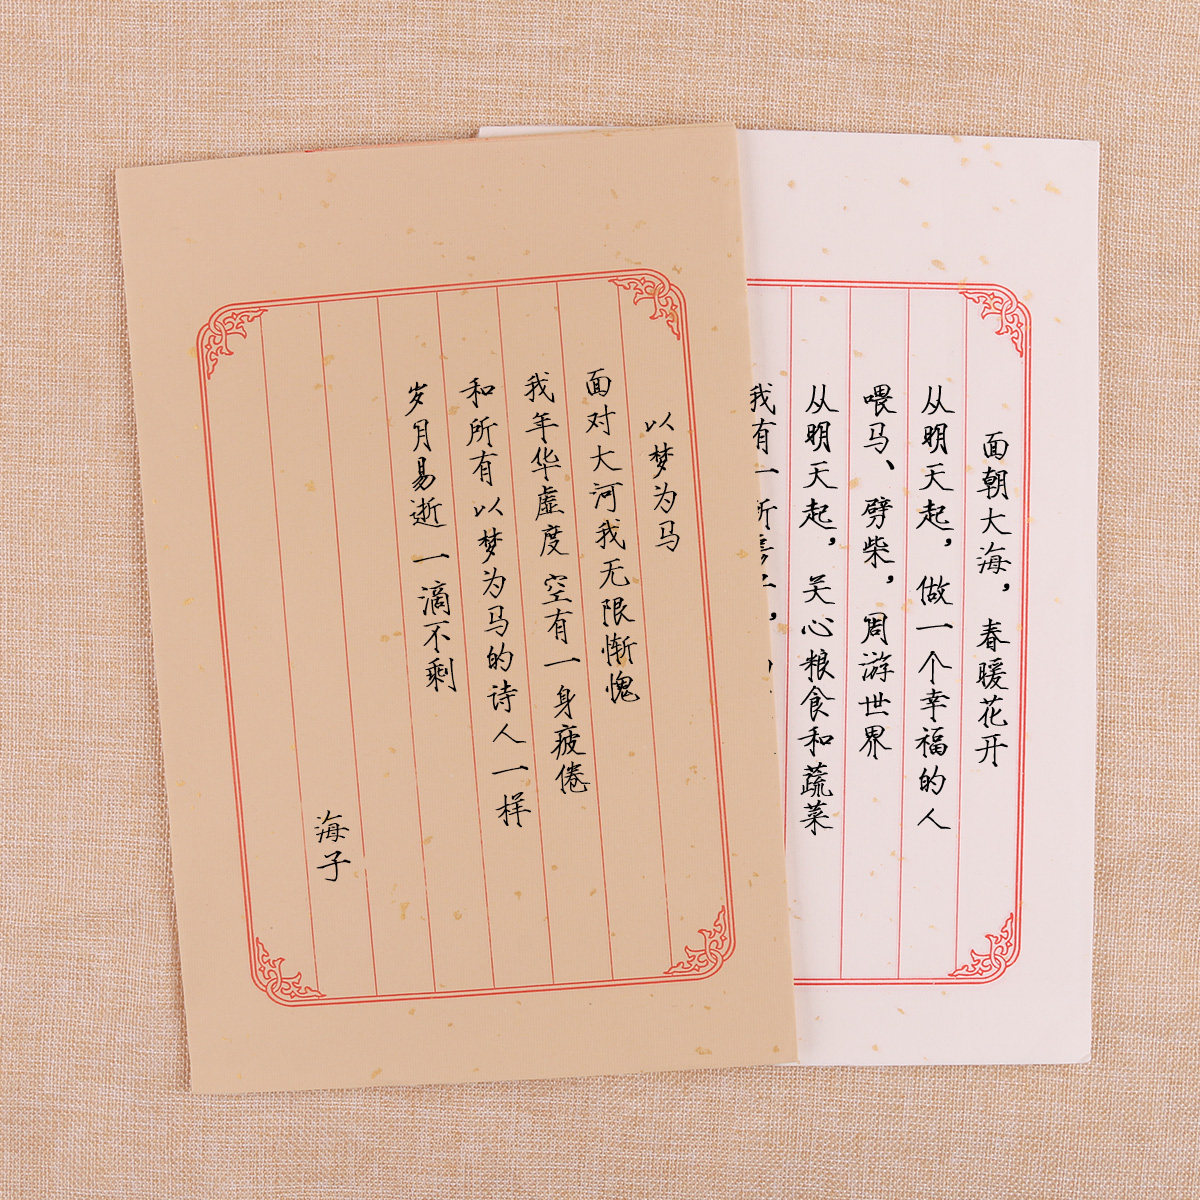 以梦为马
面对大河我无限惭愧
我年华虚度 空有一身疲倦
和所有以梦为马的诗人一样
岁月易逝 一滴不剩
海子
面朝大海，春暖花开
从明天起，做一个幸福的人
喂马、劈柴，周游世界
从明天起，关心粮食和蔬菜
我有一所